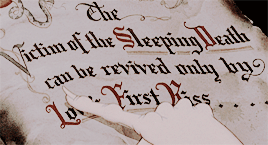 The
Victim of the Sleeping Death
can be revived only by
Love's First Kiss....